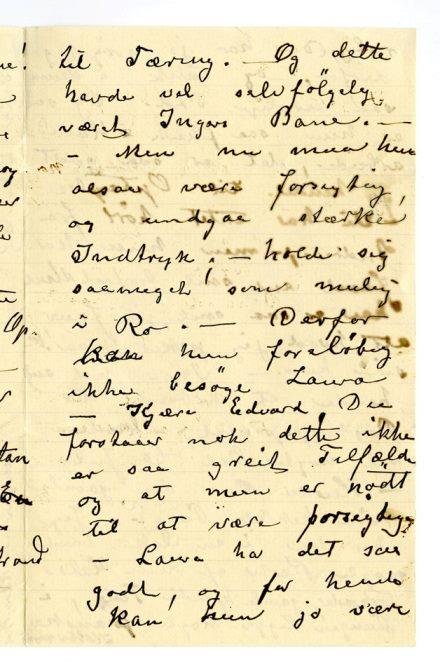 til Tæring. — Og dette
havde vel selvfölgelig
været Ingers Bane. —
- Men nu maa hun
altsaa være forsigtig,
og undgaa stærke
Indtryk, — holde sig
saameget som mulig
i Ro. — Derfor
kan hun foreløbig
ikke besöge Laura
— Kjære Edvard, Du
forstaaer nok dette ikke
er saa greit Tilfælde
og at man er nödt
til at være forsigtig
— Laura har det saa
godt, og for hende
kan hun jo være